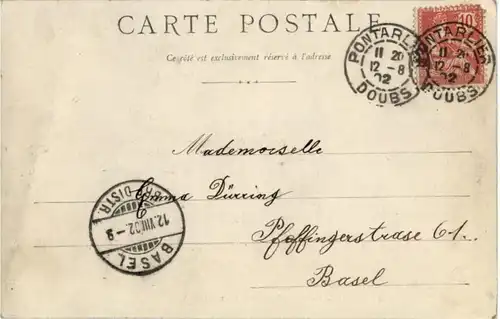 CARTE POSTALE
Ce côté est exclusivement réservé à l'adresse
PONTARLIER
11 20
12 - 8
02
DOUBS
PONTARLIER
11 20
12 - 8
02
DOUBS
10
Mademoiselle
Emma Dürring
Pfeffingerstrase 61.
Basel
BRF. DISTR.
12.VIII.02.-9
BASEL